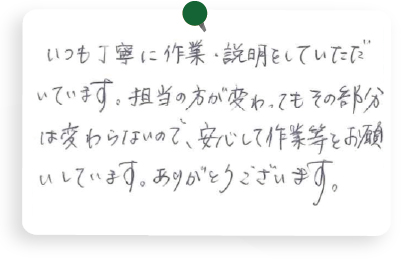 いつも丁寧に作業・説明をしていただ
いています。担当の方が変わってもその部分
は変わらないので、安心して作業等をお願
いしています。ありがとうございます。